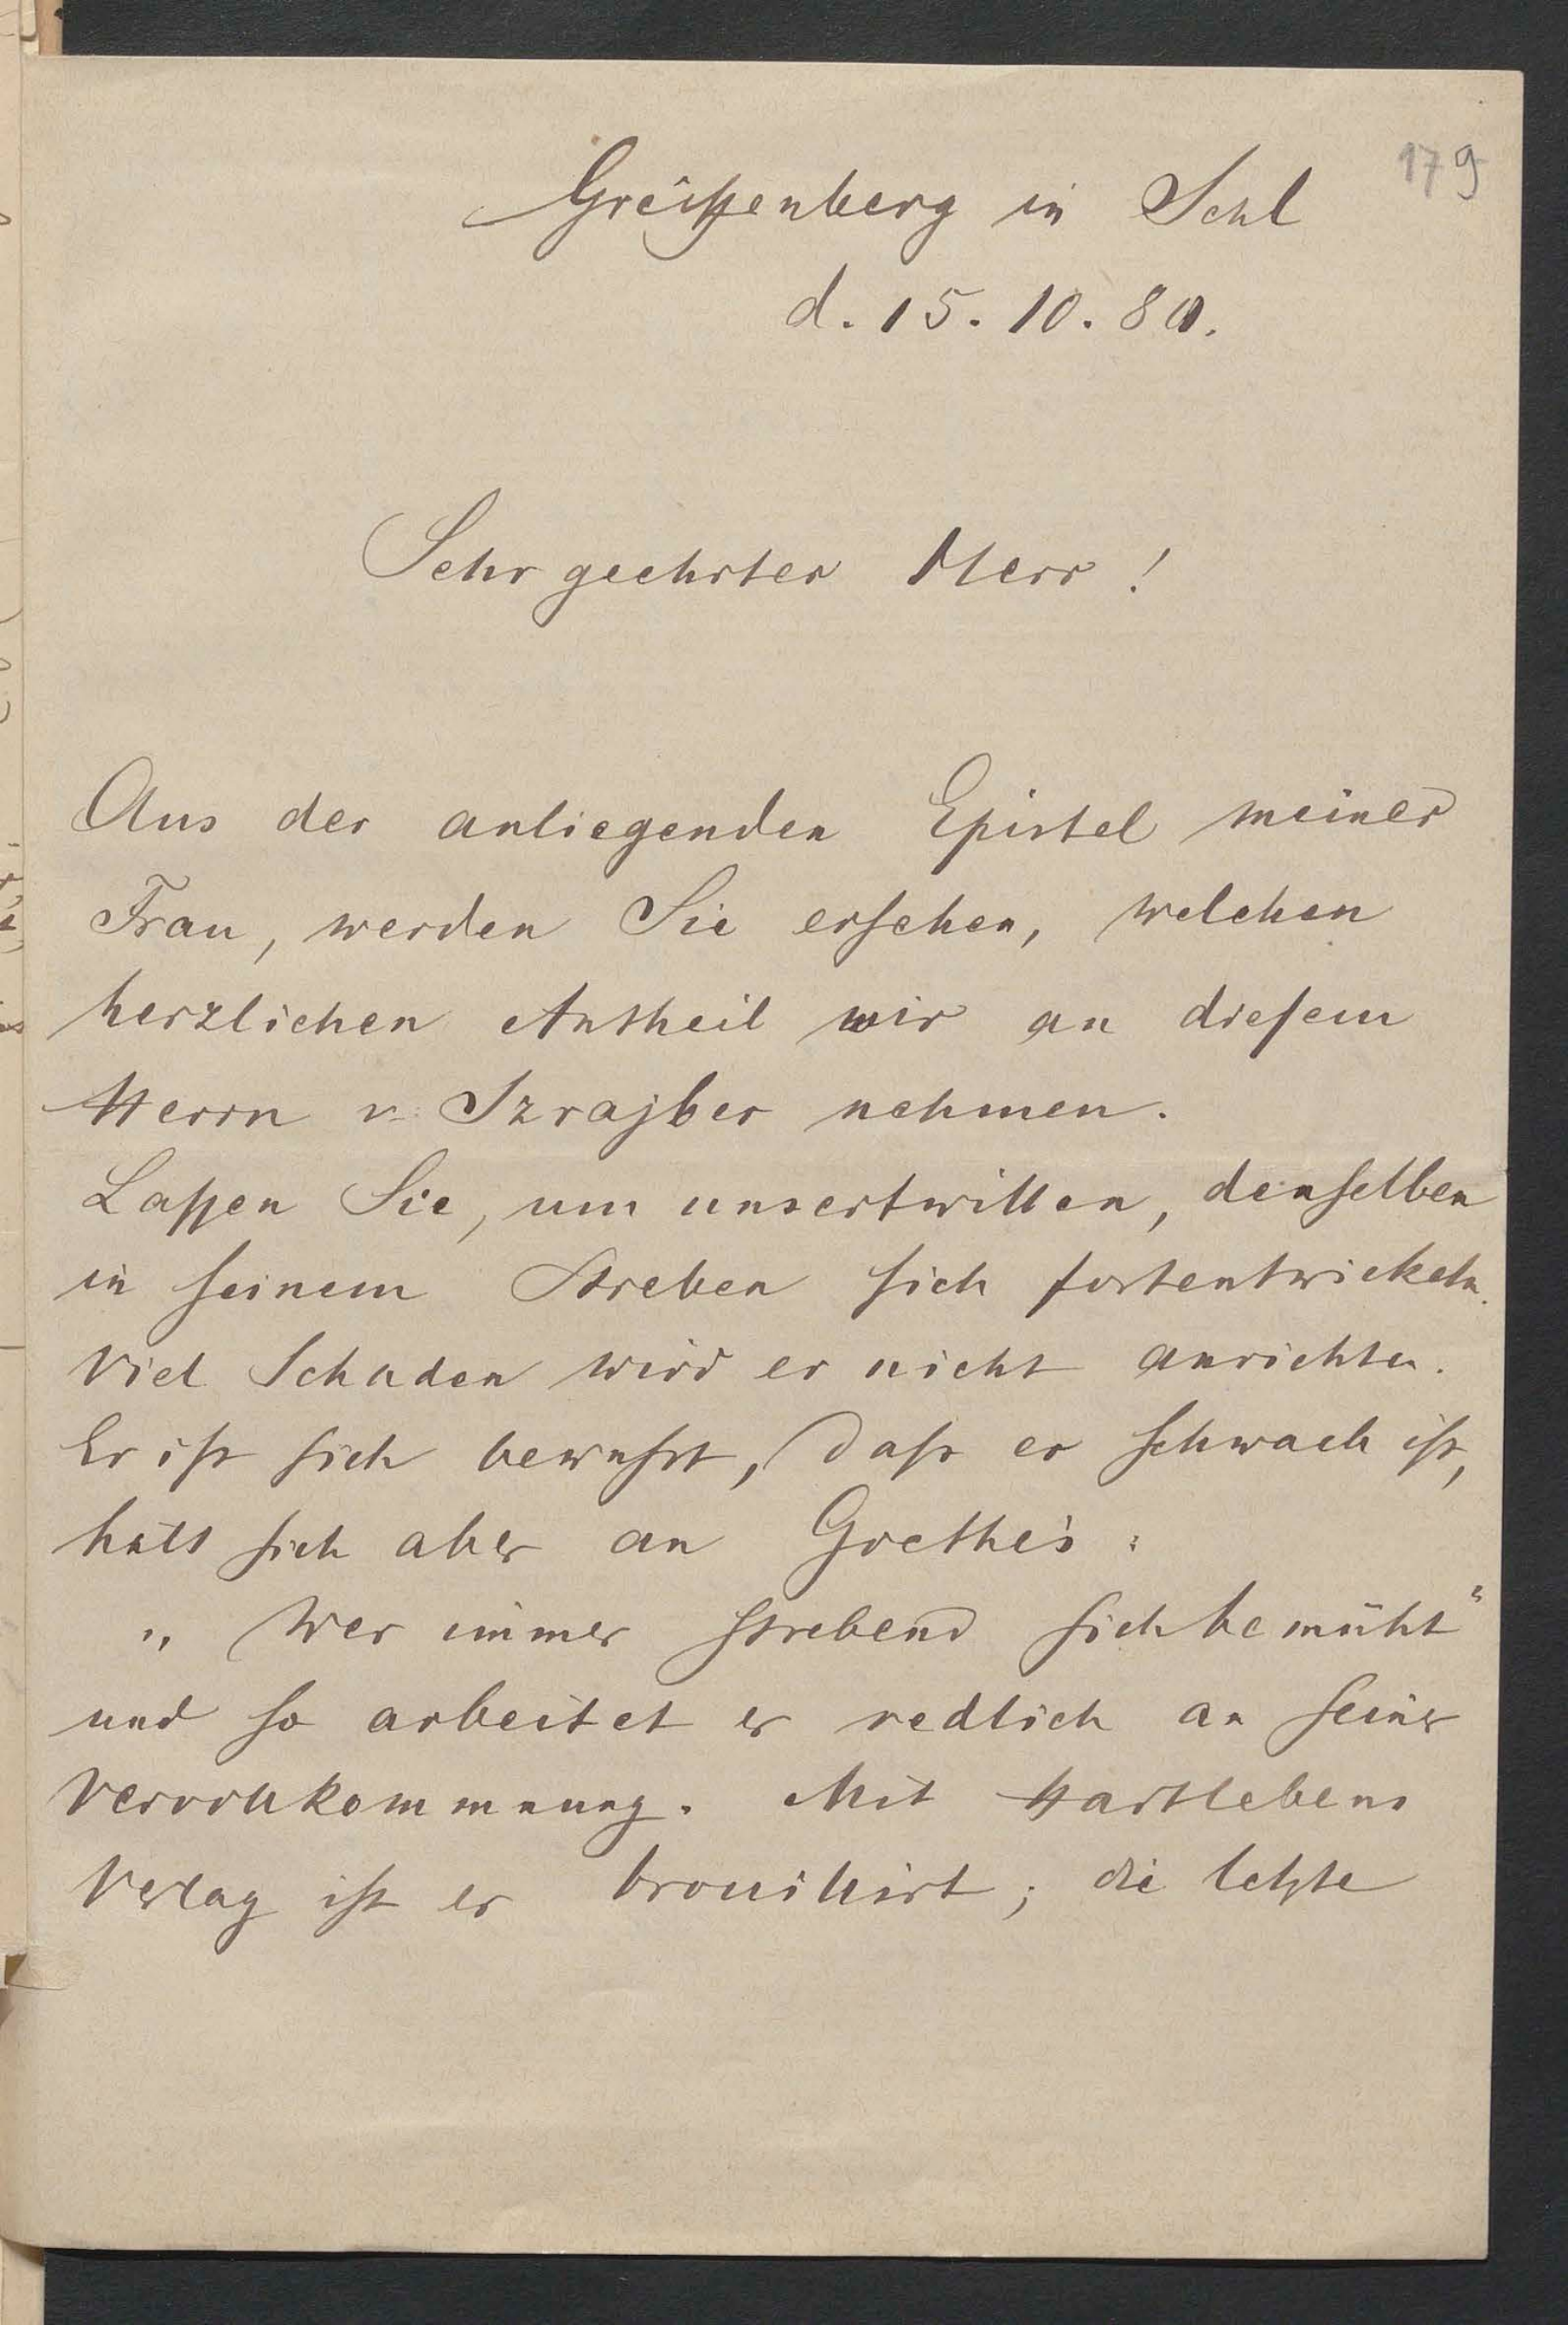 179
Greiffenberg in Schl
d. 15. 10. 80.
Sehr geehrter Herr!
Aus der anliegenden Epistel meiner
Frau, werden Sie ersehen, welchen
herzlichen Antheil wir an diesem
Herrn v. Szrajber nehmen.
Lassen Sie, um unsertwillen, denselben
in seinem Streben sich fortentwickeln.
Viel Schaden wird er nicht anrichten.
Er ist sich bewusst, dass er schwach ist,
hält sich aber an Goethe's:
„Wer immer strebend sich bemüht“
und so arbeitet er redlich an seiner
Vervollkommnung. Mit Hartlebens
Verlag ist er brouillirt; die letzte